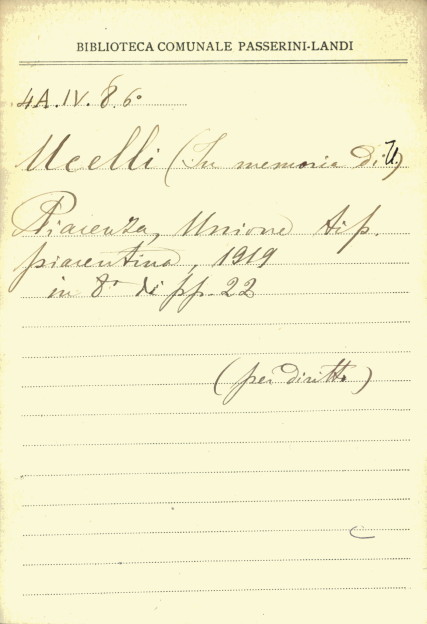 BIBLIOTECA COMUNALE PASSERINI-LANDI
4A.IV.8.6°
Ucelli (In memoria di U.)
Piacenza, Unione tip.
piacentina, 1919
in 8° di pp. 22
(per diritto)